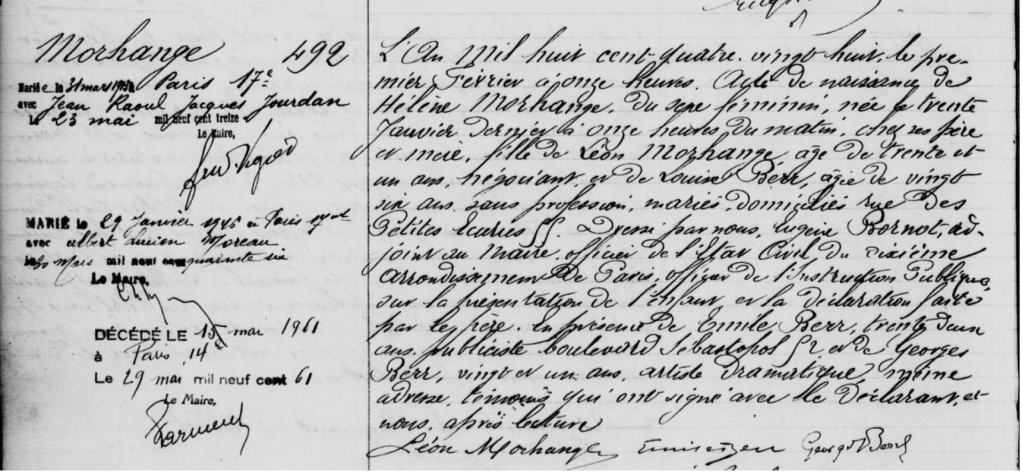 Morhange 492
Marié e le 31 mars 19 Paris 17e
avec Jean Raoul Jacques Jourdan
le 23 mai mil neuf cent treize
Le Maire,
MARIÉ le 29 Janvier 1946 à Paris
avec Albert Lucien Moreau
mars mil neuf cent
Le Maire,
DÉCÉDÉ LE 15 mai 1961
à Paris 14e
Le 29 mai mil neuf cent 61
Le Maire,
L'An Mil huit cent quatre-vingt huit, le pre-
mier Février à onze heures. Acte de naissance de
Hélène Morhange, du sexe féminin, née le trente
Janvier dernier à onze heures du matin, chez ses père
et mère, fille de Léon Morhange, âgé de trente et
un ans, négociant, et de Louise Berr, âgée de vingt
six ans, sans profession, mariés, domiciliés rue des
Petites Ecuries 55. Dressé par nous, Eugène Bornot, ad-
joint au Maire, officier de l'Etat Civil du dixième
arrondissement de Paris, officier de l'Instruction Publique,
sur la présentation de l'enfant et la déclaration faite
par le père. En présence de Emile Berr, trente deux
ans, publiciste, boulevard Sébastopol 52, et de Georges
Berr, vingt et un ans, artiste dramatique, même
adresse, témoins qui ont signé avec le déclarant, et
nous, après lecture
Léon Morhange Georges Berr